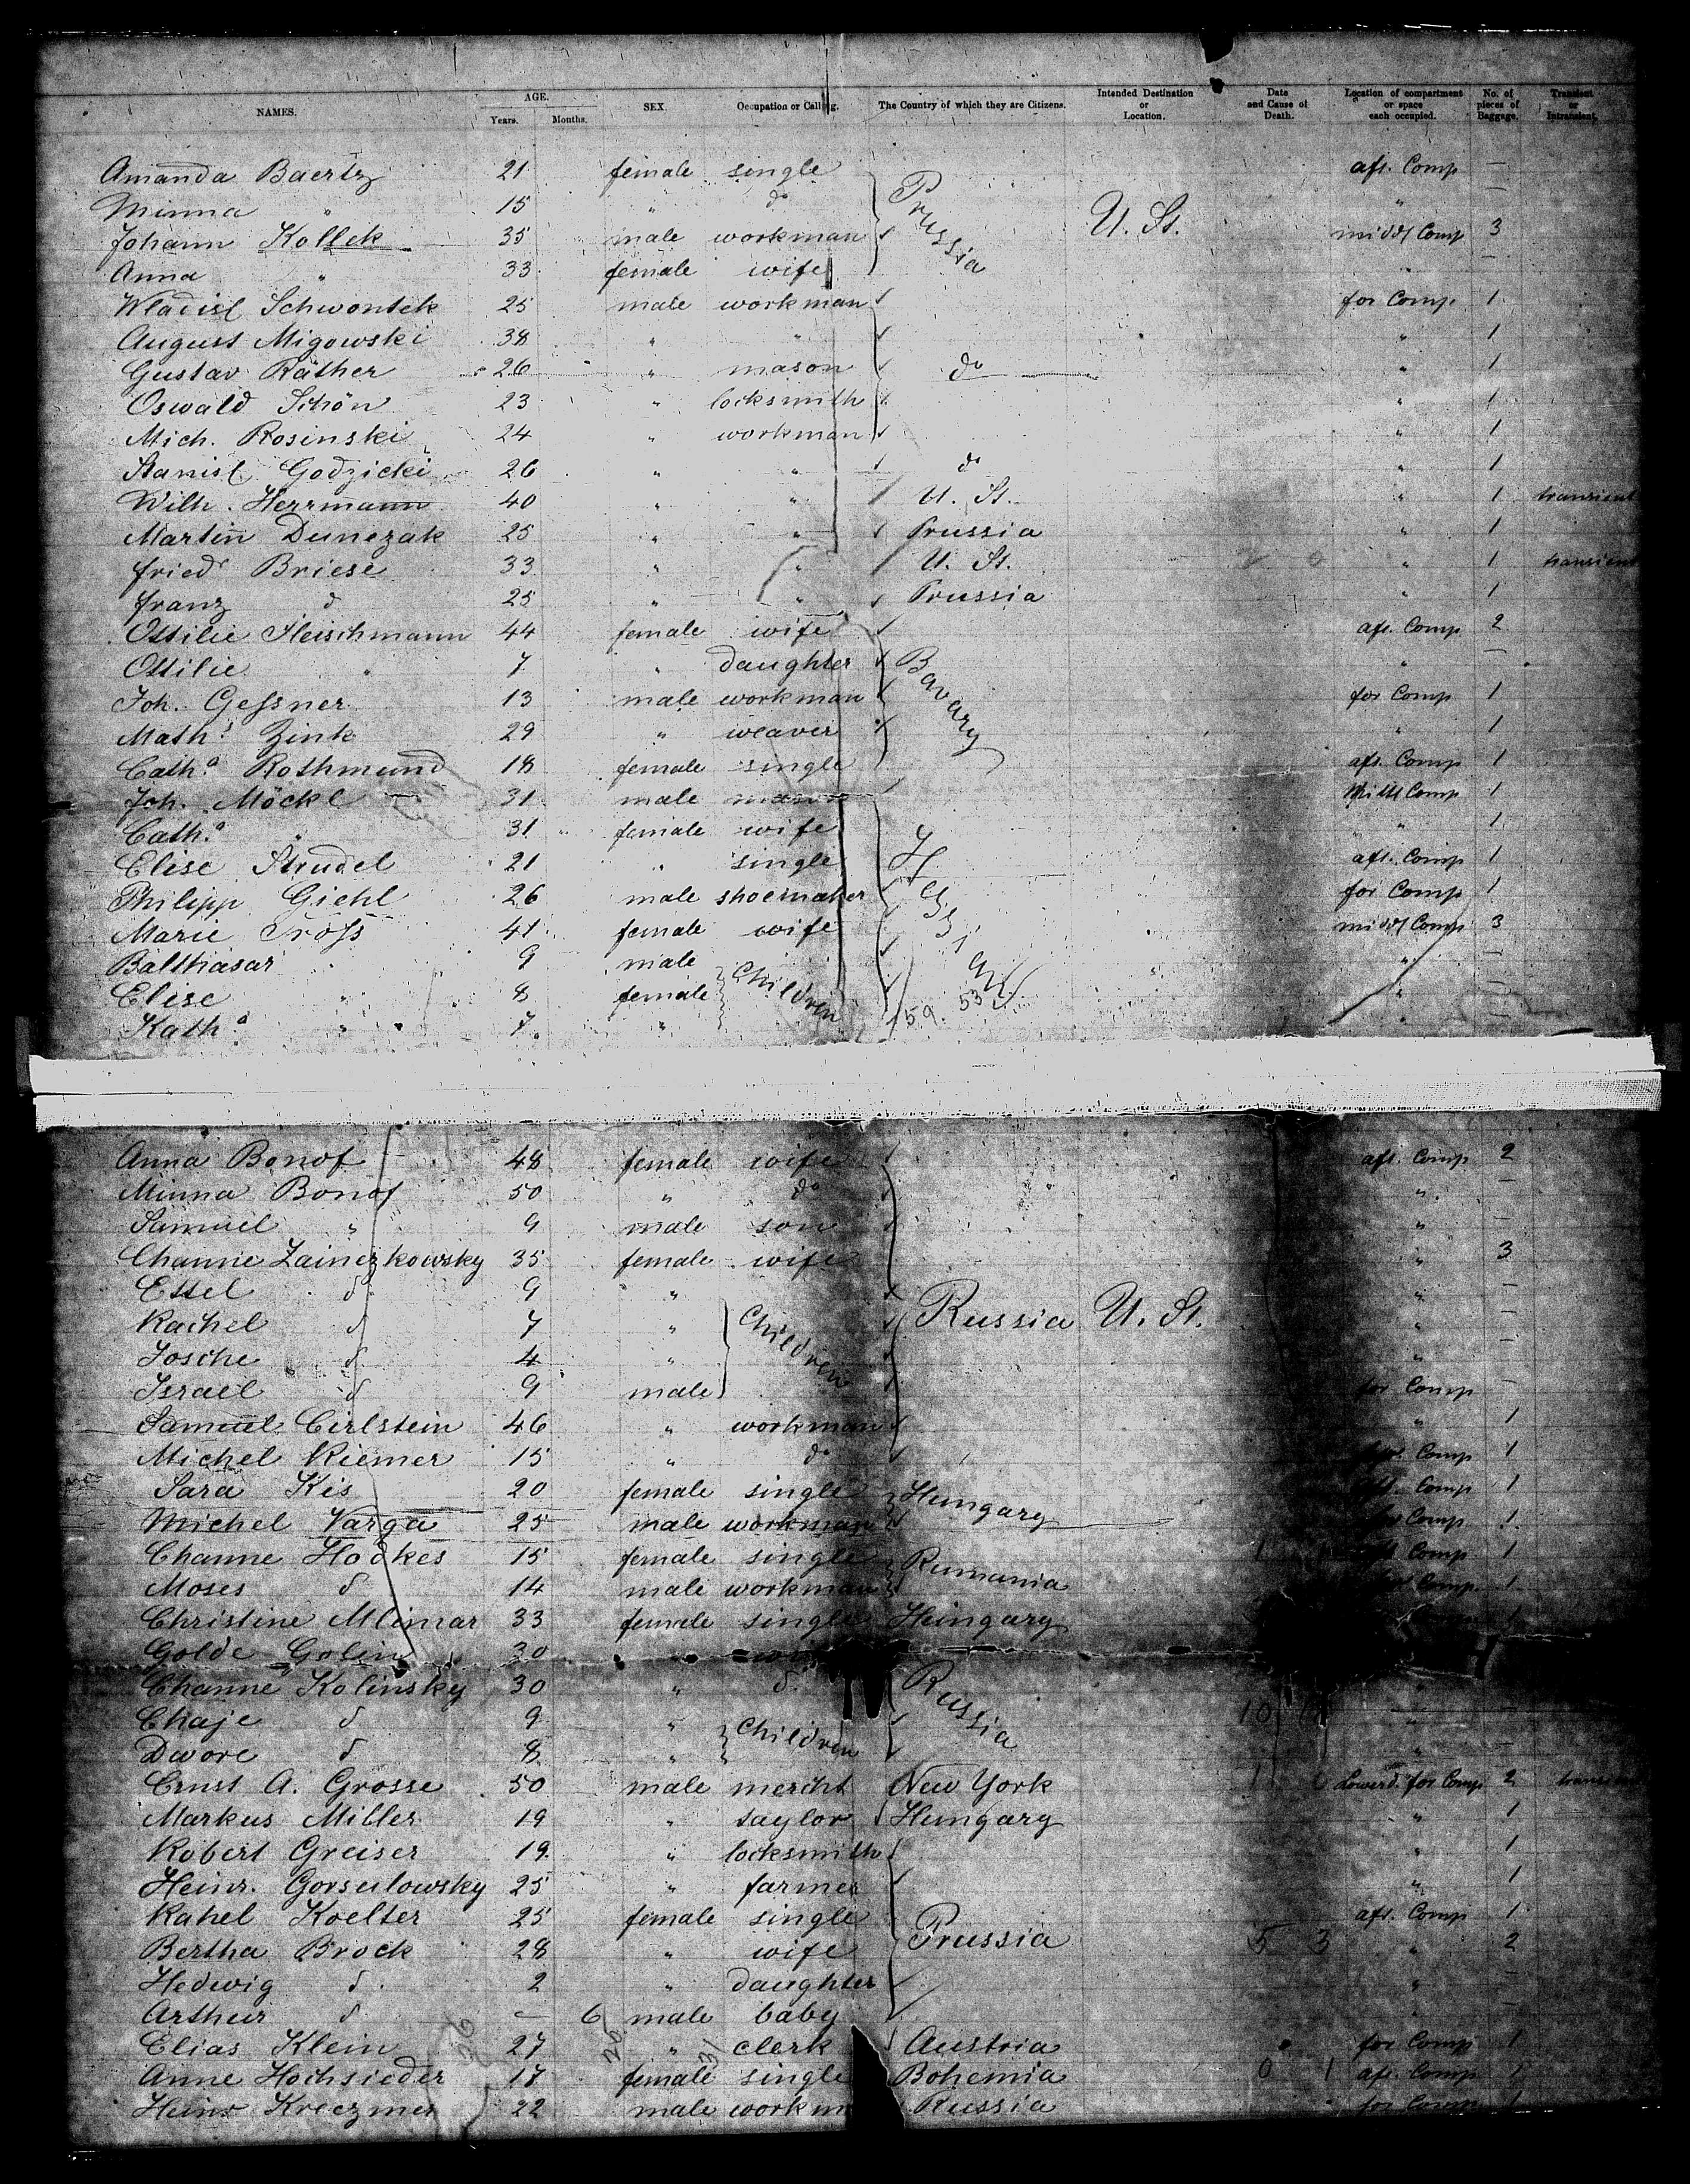 NAMES. AGE. Years. Months. SEX. Occupation or Calling. The Country of which they are Citizens. Intended Destination or Location. Date and Cause of Death. Location of compartment or space each occupied. No. of pieces of Baggage. Transient or Intransient.
Amanda Baertz 21 female single Prussia U. St. aft. Comp —
Minna " 15 " do " —
Johann Kollek 35 male workman middl Comp 3
Anna " 33 female wife " —
Wladisl Schwontek 25 male workman do for Comp. 1
August Migowski 38 " " " 1
Gustav Räther 26 " mason " 1
Oswald Schön 23 " locksmith " 1
Mich. Rosinski 24 " workman " 1
Stanisl Godzicki 26 " " do " 1
Wilh. Herrmann 40 " " U. St. " 1 transient
Martin Dunczak 25 " " Prussia " 1
Friedr Briese 33 " " U. St. " 1 transient
Franz d 25 " " Prussia " 1
Ottilie Fleischmann 44 female wife Bavary aft. Comp 2
Ottilie " 7 " daughter " —
Joh. Geßner 13 male workman for Comp 1
Math.s Zink 29 " weaver " 1
Cath.a Rothmund 18 female single aft. Comp 1
Joh. Möckl 31 male mason Hessian middl Comp 1
Cath.a " 31 female wife " 1
Elise Strudel 21 " single aft. Comp 1
Philipp Giehl 26 male shoemaker for Comp 1
Marie Troß 41 female wife middl Comp 3
Balthasar " 9 male Children " —
Elise " 8 female " —
Kath.a " 7 " " —
59 53
Anna Bonof 48 female wife Russia U. St. aft. Comp 2
Minna Bonof 50 " do " —
Samuel " 9 male son " —
Channe Zainczkowsky 35 female wife " 3
Ettel d 9 " Children " —
Rachel d 7 " " —
Josche d 4 " " —
Israel d 9 male for Comp —
Samuel Cirlstein 46 " workman " 1
Michel Riemer 15 " do for. Comp 1
Sara Kis 20 female single Hungary aft. Comp 1
Michel Varga 25 male workman for Comp 1
Channe Hodkes 15 female single Rumania aft Comp 1
Moses d 14 male workman for Comp. 1
Christine Mlimar 33 female single Hungary 1
Golde Golin 30
Channe Kolinsky 30 " d. Russia "
Chaje d 9 " Children " —
Dwore d 8 " " —
Ernst A. Grosse 50 male mercht New York Lowerd. for Comp 2
Markus Miller 19 " taylor Hungary " 1
Robert Greiser 19 " locksmith Prussia " 1
Heinr. Gorsulowsky 25 " farmer " 1
Rahel Koelter 25 female single aft. Comp 1
Bertha Brock 28 " wife 5 3 " 2
Hedwig d. 2 " daughter " —
Arthur d — 6 male baby " —
Elias Klein 27 " clerk Austria for Comp 1
Anne Hochsieder 17 female single Bohemia 0 1 aft. Comp 1
Heinr Kreczmer 22 male workm Russia for Comp 1